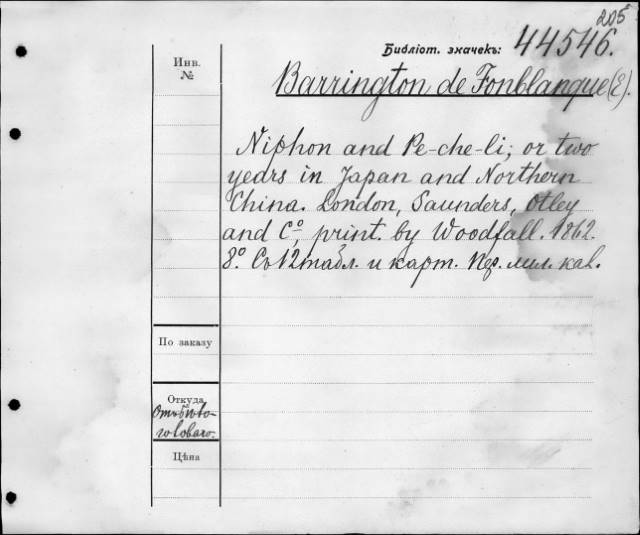 205
Библіот. значекъ: 44546.
Инв.
№
Barrington de Fonblanque (E).
Niphon and Pe-che-li; or two
years in Japan and Northern
China. London, Saunders, Otley
and Cº, print. by Woodfall. 1862.
8º. Съ 12 табл. и карт. Пер. мил. кав.
По заказу
Откуда
Цѣна